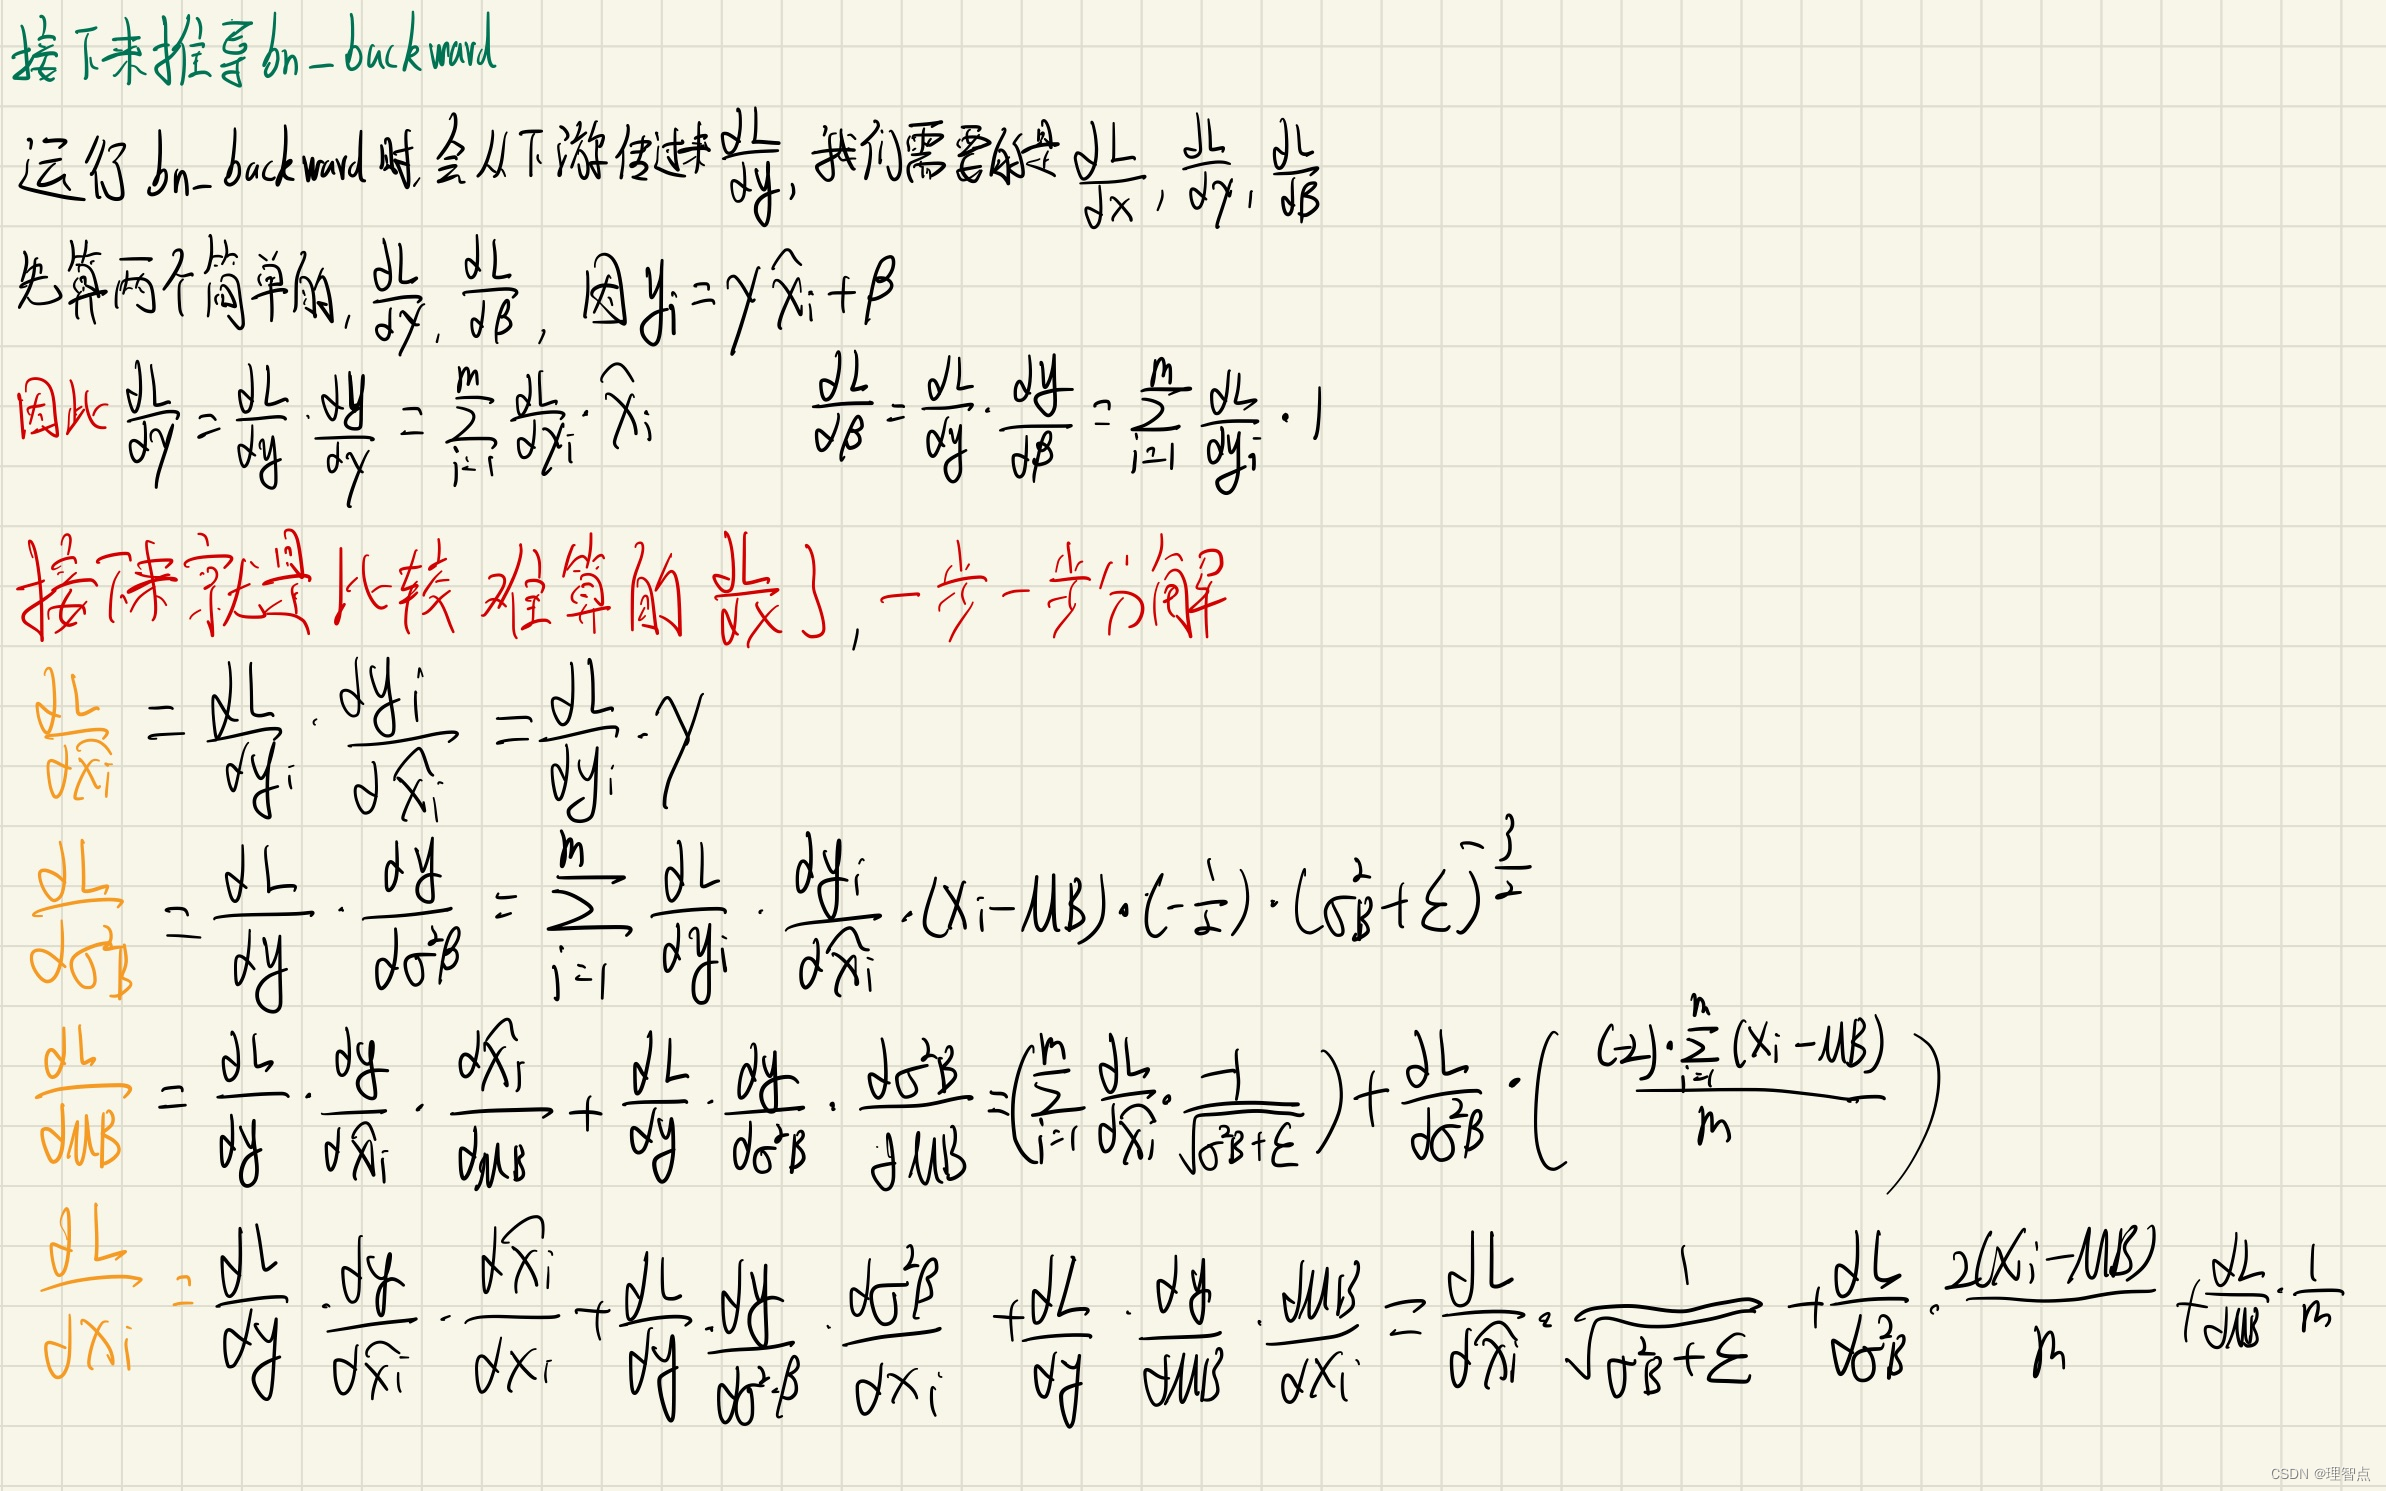 接下来推导bn_backward
运行bn_backward时,会从下游传过来dL/dy,我们需要的是dL/dx, dL/dγ, dL/dβ
先算两个简单的, dL/dγ, dL/dβ, 因yi=γx̂i+β
因此 dL/dγ = dL/dy · dy/dγ = Σ_{i=1}^{m} dL/dyi · x̂i    dL/dβ = dL/dy · dy/dβ = Σ_{i=1}^{m} dL/dyi · 1
接下来就是比较难算的dL/dx了,一步一步分解
dL/dx̂i = dL/dyi · dyi/dx̂i = dL/dyi · γ
dL/dσ²B = dL/dy · dy/dσ²β = Σ_{i=1}^{m} dL/dyi · dyi/dx̂i · (xi-μB) · (-1/2) · (σ²B+ε)^{-3/2}
dL/dμB = dL/dy · dy/dx̂i · dx̂i/dμB + dL/dy · dy/dσ²B · dσ²B/dμB = (Σ_{i=1}^{m} dL/dx̂i · -1/√(σ²B+ε)) + dL/dσ²B · ((-2)·Σ_{i=1}^{m}(xi-μB)/m)
dL/dxi = dL/dy · dy/dx̂i · dx̂i/dxi + dL/dy · dy/dσ²β · dσ²β/dxi + dL/dy · dy/dμB · dμB/dxi = dL/dx̂i · 1/√(σ²B+ε) + dL/dσ²B · 2(xi-μB)/m + dL/dμB · 1/m
CSDN @理智点